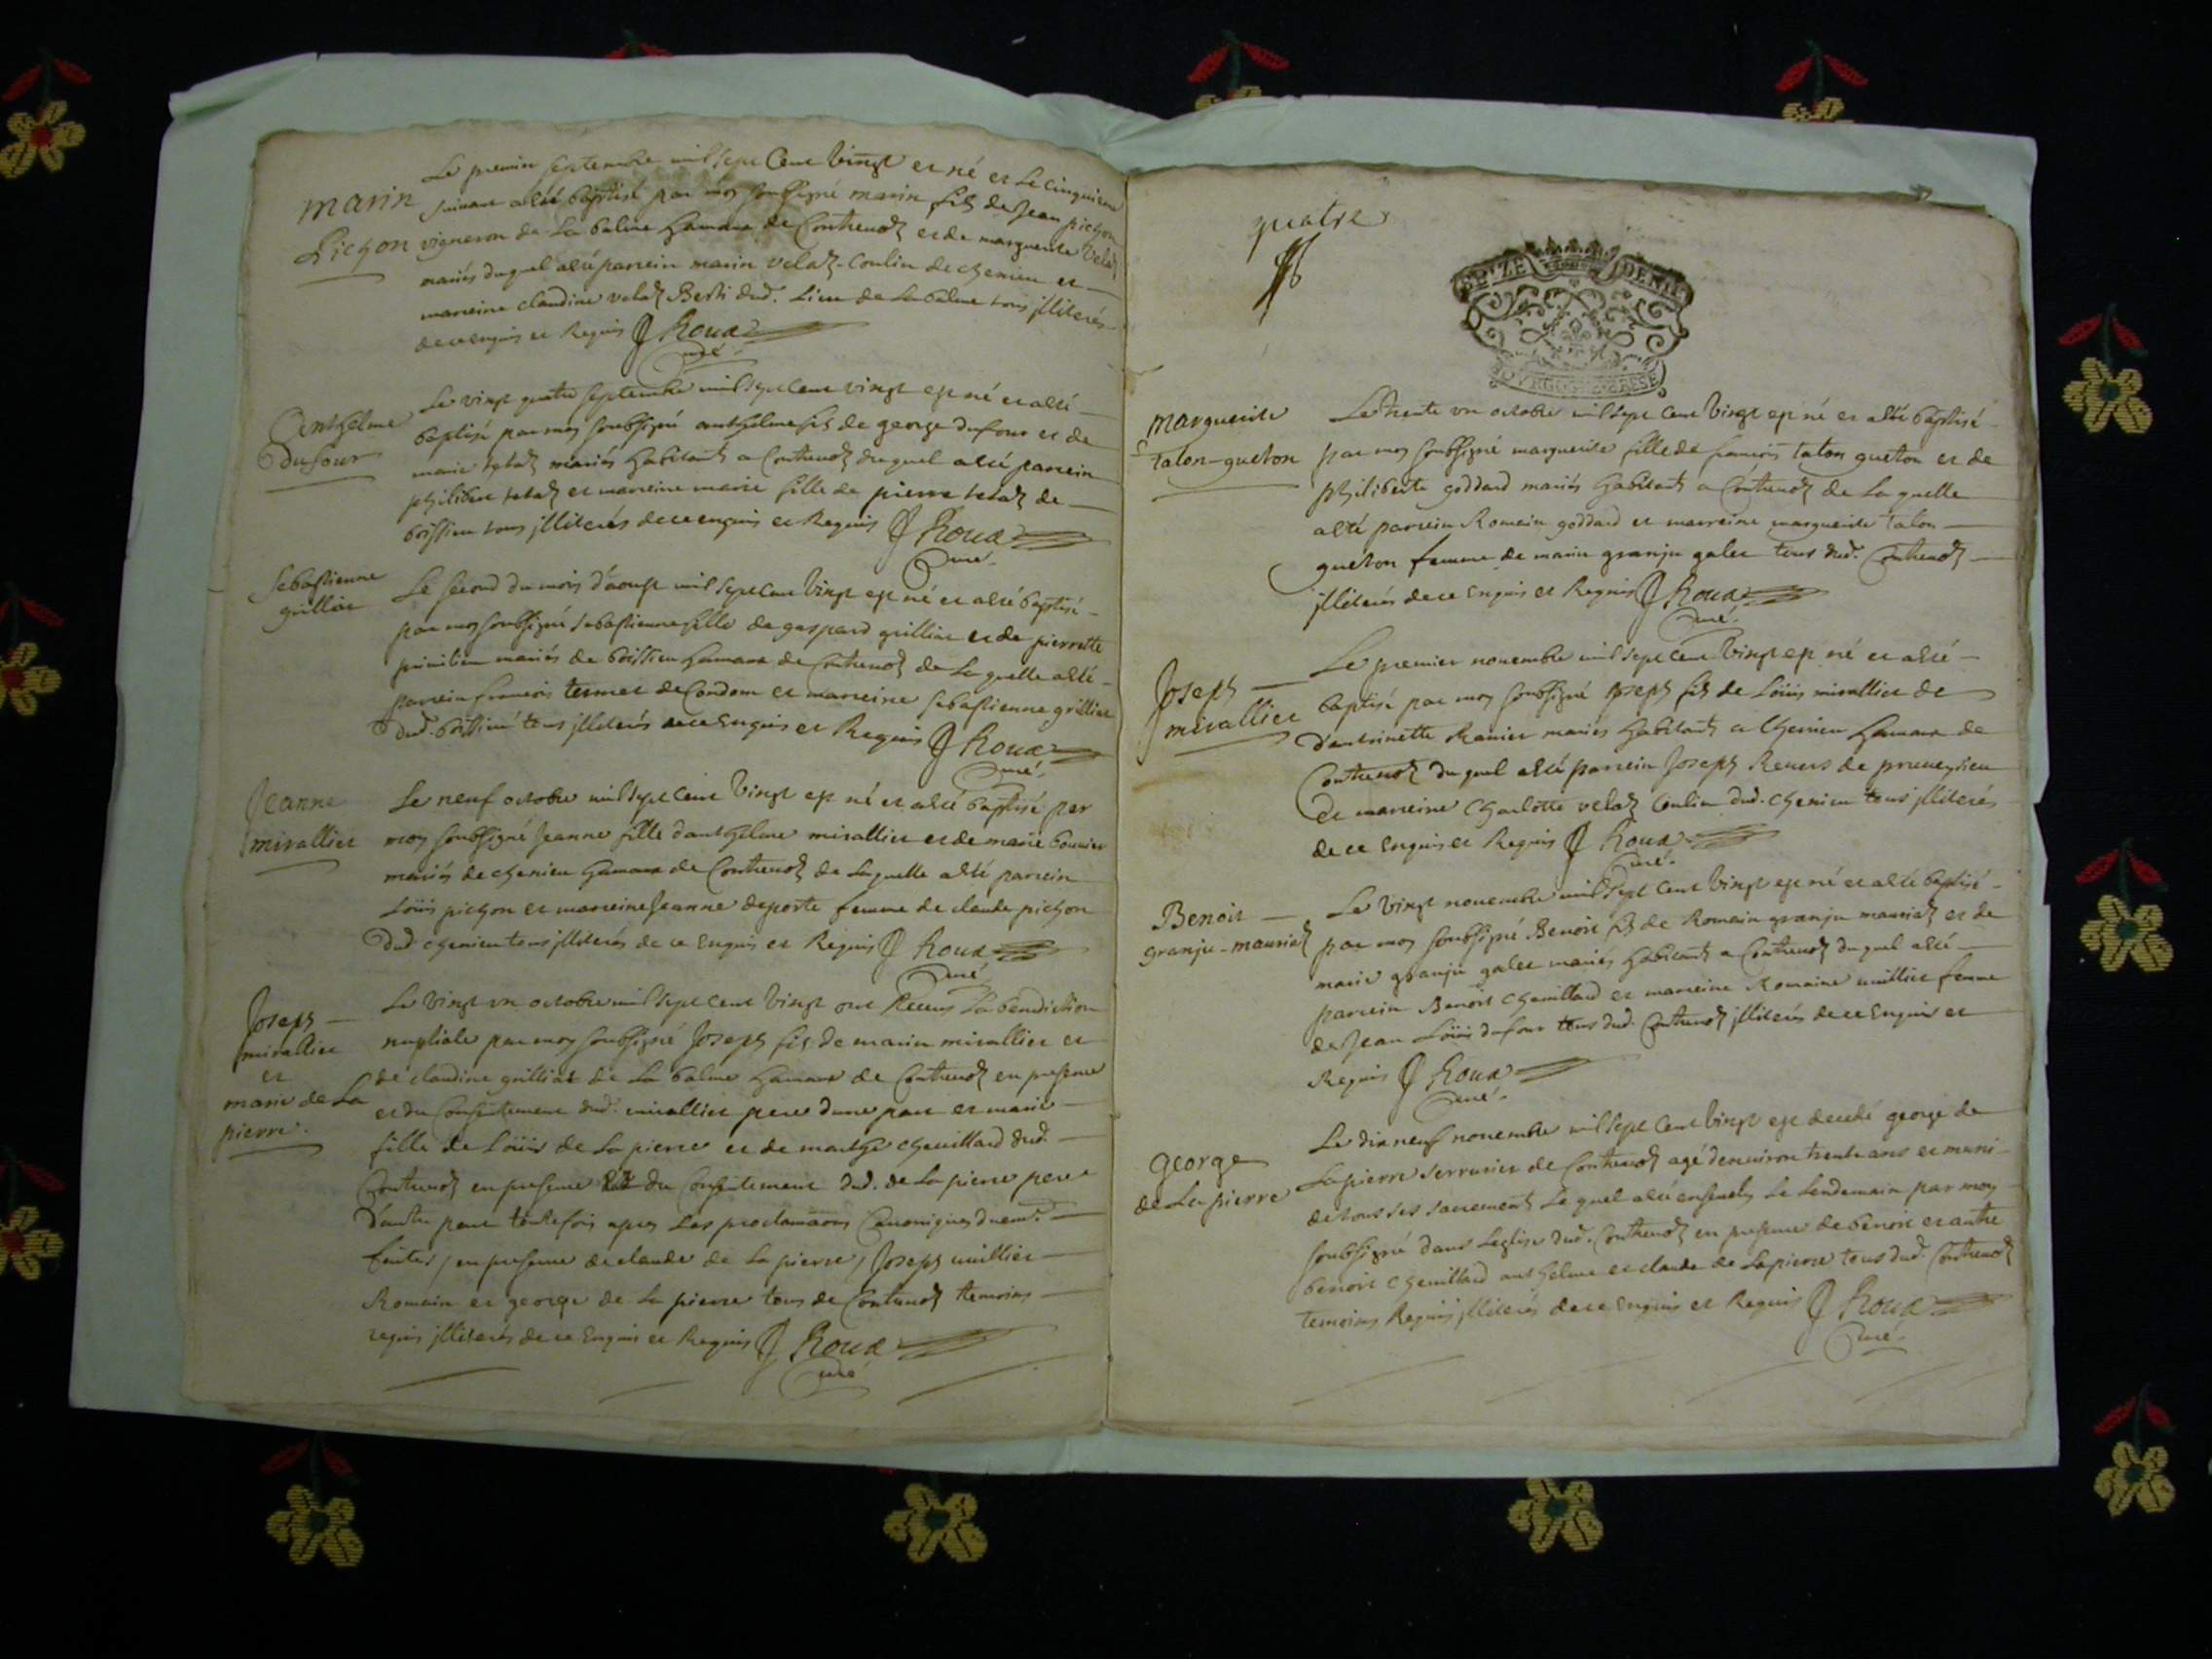 marin
pichon
Le premier septembre mil sept Cent Vingt et né et Le cinquieme
suivant a été baptisé par moy soubsigné marin fils de Jean pichon
vigneron de La balme hamaux de Contrenoz et de marguerite velaz
mariés duquel a été parrein marin velaz-Coulin de chemieu et
marreine claudine velaz Berli dud. Lieu de La balme tous jlliterés
de ce enquis et Requis J Roux
curé
anthelme
Dufour
Le vingt quatre septembre mil sept Cent vingt est né et a été
baptisé par moy soubsigné anthelme fils de george dufour et de
marie mariés habitants a Contrenoz duquel a été parrein
philibert et marreine marie fille de pierre de
boissieu tous jlliterés de ce enquis et Requis J Roux
curé
Sebastienne
grilliat
Le second du mois d'aoust mil sept Cent Vingt est né et a été baptisé
par moy soubsigné sebastienne fille de gaspard grilliat et de pierrette
mariés de boissieu hamaux de Contrenoz de La quelle a été
parrein francois termet de Condom et marreine sebastienne grilliat
dud. boissieu tous jlliterés de ce Enquis et Requis J Roux
curé
Jeanne
mirallier
Le neuf octobre mil sept Cent Vingt est né et a été baptisé par
moy soubsigné Jeanne fille danthelme mirallier et de marie bouvier
mariés de chemieu hamaux de Contrenoz de Laquelle a été parrein
Loüis pichon et marreine Jeanne deporte femme de claude pichon
dud. chemieu tous jlliterés de ce Enquis et Requis J Roux
curé
Joseph
mirallier
et
marie de La
pierre.
Le Vingt un octobre mil sept cent Vingt ont Receus La benediction
nuptiale par moy soubsigné Joseph fils de marin mirallier et
de claudine grilliat de La balme hamaux de Contrenoz en presence
et du Consentement dud. mirallier pere dune part et marie
fille de Loüis de La pierre et de marthe chevillard dud.
Contrenoz en presence du Consentement dud. de La pierre pere
d'autre part toutefois apres Les proclamaons Canoniques duemt.
faites, en presence de claude de La pierre, Joseph millier
Romain et george de La pierre tous de Contrenoz temoins
requis jlliterés de ce Enquis et Requis J Roux
curé
quatre
SEIZE DENIE
BOVRGOG BRESE
marguerite
talon-gueton
Le trente un octobre mil sept Cent Vingt est né et a été baptisé
par moy soubsigné marguerite fille de francois talon gueton et de
philiberte goddard mariés habitants a Contrenoz de La quelle
a été parrein Romain goddard et marreine marguerite talon
gueton femme de marin granju galer tous dud. Contrenoz
jlliterés de ce Enquis et Requis J Roux
curé
Joseph
mirallier
Le premier novembre mil sept Cent Vingt est né et a été
baptisé par moy soubsigné Joseph fils de Loüis mirallier de
d'antoinette Ranier mariés habitants a Chemieu hamaux de
Contrenoz du quel a été parrein Joseph Revers de premeyzieu
et marreine Charlotte velaz Coulin dud. chemieu tous jlliterés
de ce Enquis et Requis J Roux
curé
Benoit
granju-mauriaz
Le Vingt novembre mil sept Cent Vingt est né et a été baptisé
par moy soubsigné Benoit fils de Romain granju mauriaz et de
marie granju galer mariés habitants a Contrenoz duquel a été
parrein Benoit Chevillard et marreine Romaine millier femme
de Jean Loüis dufour tous dud. Contrenoz jlliterés de ce Enquis et
Requis J Roux
curé
george
de La pierre
Le dixneuf novembre mil sept Cent Vingt est decedé george de
Lapierre serrurier de Contrenoz agé denviron trente ans et muni
de tous ses sacrements Le quel a été ensevely Le Lendemain par moy
soubsigné dans Leglise dud. Contrenoz en presence de benoit et autre
benoit Chevillard anthelme et claude de Lapierre tous dud. Contrenoz
temoins Requis jlliterés de ce Enquis et Requis J Roux
curé